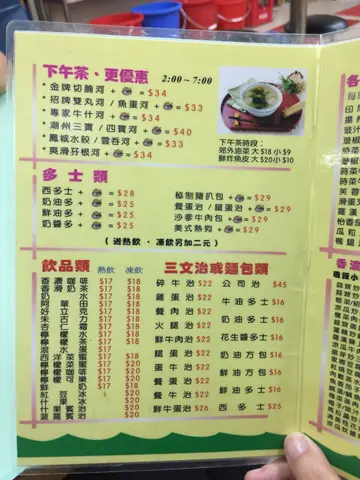 下午茶、更優惠 2:00~7:00
* 金牌切腩河 + = $34
* 招牌雙丸河 / 魚蛋河 + = $33
* 專家牛什河 + = $34
* 潮州三寶 / 四寶河 + = $40
* 鳳城水餃 / 雲吞河 + = $33
* 爽滑孖根河 + = $34
下午茶時段:
郊外油菜 大$18 小$9
鮮炸魚皮 大$20 小$10
多士類
西多士 + = $28
奶油多 + = $25
鮮油多 + = $25
奶醬多 + = $25
秘制豬扒包 + = $29
餐蛋治 / 腿蛋治 + = $29
沙爹牛肉包 + = $29
美式熱狗 + = $29
( 送熱飲、凍飲另加二元 )
飲品類 熱飲 凍飲
香濃咖啡 $17 $18
香滑奶茶 $17 $18
$17 $18
$17 $18
好立克 $17 $18
朱古力 $17 $18
杏仁霜 $17 $18
檸檬茶 $17 $18
檸檬水 $17 $18
$17 $18
西洋菜蜜 $17 $18
檸檬蜜 $17 $18
檸檬咖啡 $17 $18
檸檬可樂 $17 $18
鮮奶 $17 $18
紅豆冰 $20
什果冰 $20
菠蘿賓治 $20
三文治或麵包類
碎牛治 $22
雞蛋治 $22
餐肉治 $22
火腿治 $22
鮮牛肉治 $22
腿蛋治 $22
蛋牛治 $22
餐蛋治 $22
鮮牛蛋治 $26
公司治 $45
牛油多士 $16
奶油多士 $16
花生醬多士 $16
奶油方包 $16
鮮油方包 $16
鮮油多士 $16
西多士 $25